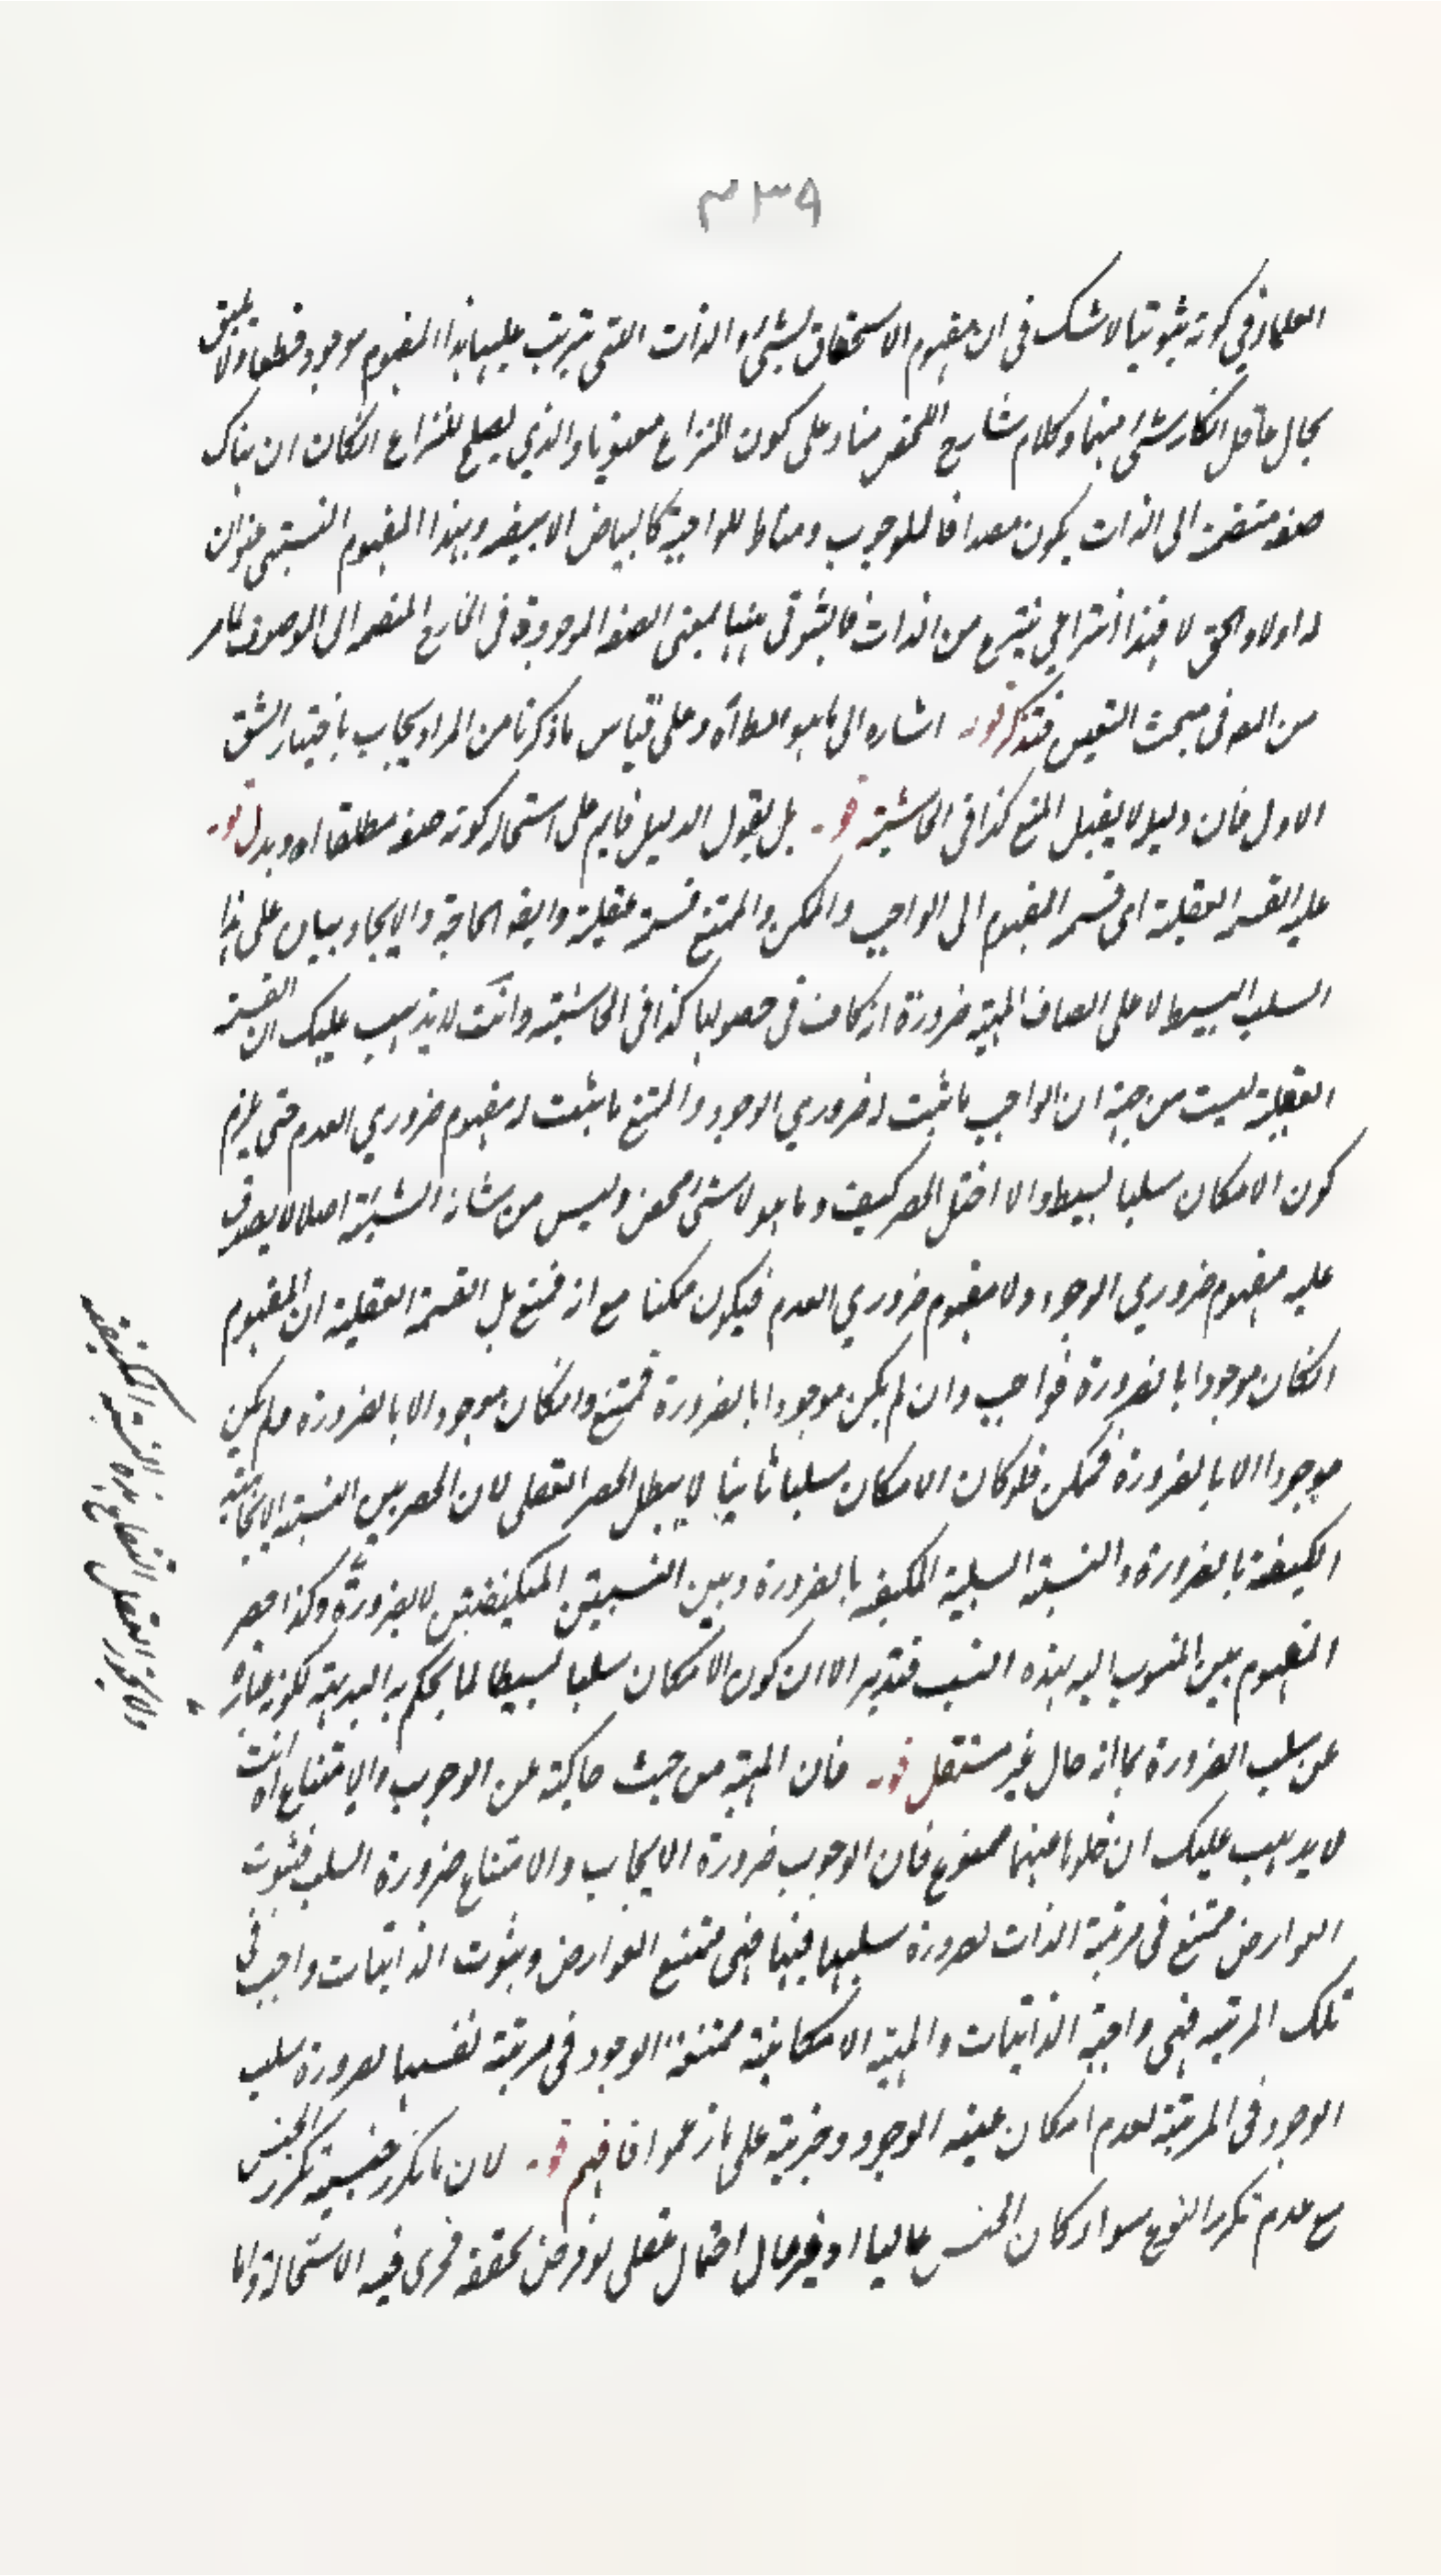 ٣٩م
العلماء في كونه ثبوتيا لا شك في ان مفهوم الاستحقاق لشيء او الذات التي يترتب عليها هذا المفهوم موجود قطعا ولا يليق
بحال عاقل انكار شيء منهما وكلام شارح المختصر بناء على كون النزاع معنويا والذي يصلح للنزاع انكان ان هناك
صفة منضمة الى الذات يكون مصداقا للوجوب ومناطا للواجبية كالبياض الابيض وهذا المفهوم النسبتي عنوان
له اولا والحق لا فهذا انتزاعي ينتزع من الذات فالثبوتي ههنا بمعنى الصفة الموجودة في الخارج المنضمة الى الموصوف كما مر
من المص في مبحث التعين فتذكر قوله اشارة الى ما هو الطاه وعلى قياس ما ذكرنا من المراد يجاب باختيار الشق
الاول فان دليله لا يقبل المنع كذا في الحاشية قوله بل يقول الدليل قايم على استحالة كونه صفة مطلقا اه ويدل قوله
عليه القسمة العقلية اي قسمة المفهوم الى الواجب والممكن والممتنع قسمة عقلية وايضا الحاجة والايجاد يبيان على هذا
السلب البسيط لا على اتصاف المهية ضرورة انه كاف في حصولها كذا في الحاشية وانت لا يذهب عليك ان القسمة
العقلية ليست من جهة ان الواجب ما ثبت له ضروري الوجود والممتنع ما ثبت له مفهوم ضروري العدم حتى يلزم
كون الامكان سلبا بسيطا والا اختل الحصر كيف وما هو لا شيء محض وليس من شانه الشيئية اصلا لا يصدق
عليه مفهوم ضروري الوجود ولا مفهوم ضروري العدم فيكون ممكنا مع انه ممتنع بل القسمة العقلية ان المفهوم
انكان موجودا بالضرورة فواجب وان لم يكن موجودا بالضرورة فممتنع وانكان موجودا لا بالضرورة ولم يكن
موجودا لا بالضرورة فممكن فلو كان الامكان سلبا ثابتا لا يبطل الحصر العقلي لان الحصر بين النسبة الايجابية
المكيفة بالضرورة والنسبة السلبية المكيفة بالضرورة وبين النسبتين المتكيفتين لا بضرورة وكذا حصر
المفهوم بين المنسوب اليه بهذه النسب فتدبر الا ان كون الامكان سلبا بسيطا لما يحكم به البديهة لكونه عبارة
عن سلب الضرورة بما انه حال غير مستقل قوله فان المهية من حيث حاكية عن الوجوب والامتناع اه انت
لا يذهب عليك ان خلوها عنهما ممنوع فان الوجوب ضرورة الايجاب والامتناع ضرورة السلب فثبوت
العوارض ممتنع في مرتبة الذات لضرورة سلبها فيها فهي ممتنع العوارض وثبوت الذاتيات واجب في
تلك المرتبة فهي واجبة الذاتيات والمهية الامكانية ممتنعة الوجود في مرتبة نفسها لضرورة سلب
الوجود في المرتبة لعدم امكان عينية الوجود وجزئيته على ما زعموا فافهم قوله لان ما تكرر جنسيته تكرر الجنس
مع عدم تكرر النوع سواء كان الجنس عاليا او غير عال احتمال عقلي لو فرض تحققه فجرى فيه الاستحالة واما